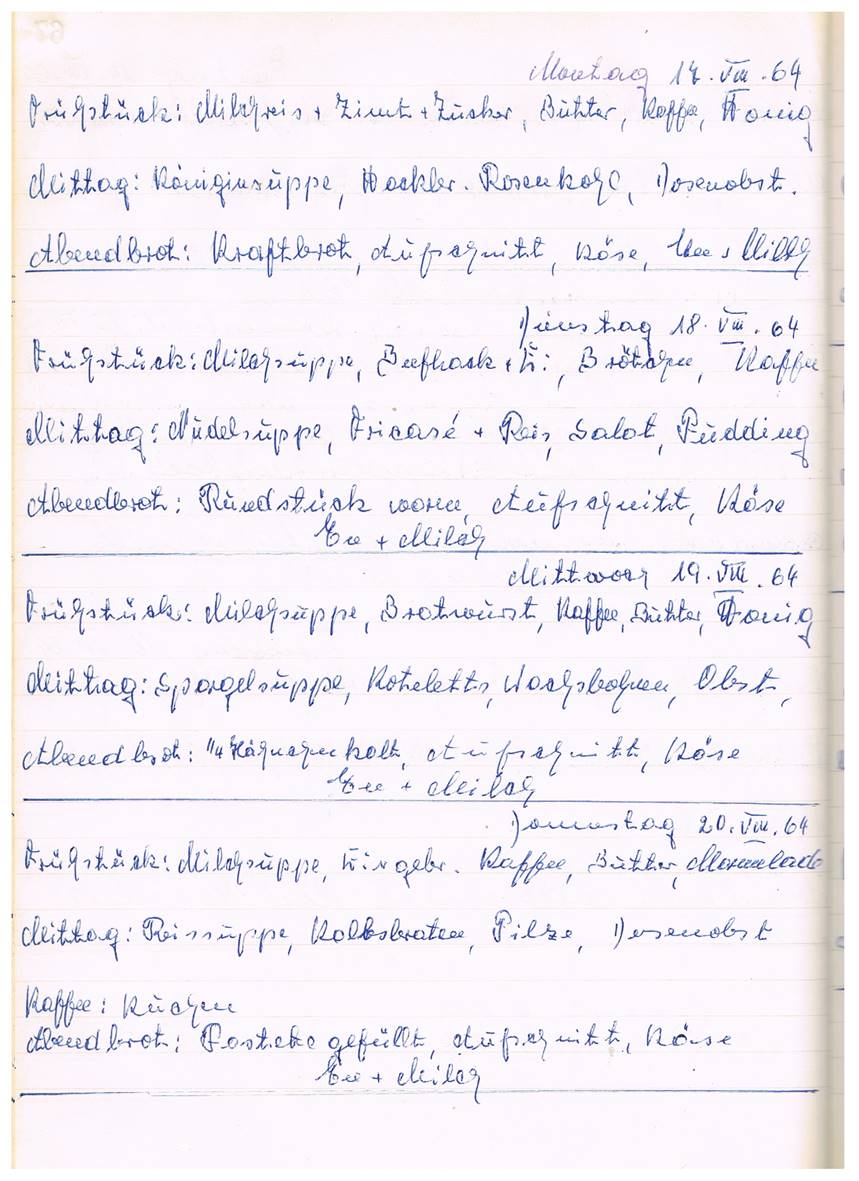 Montag 17. VIII. 64
Frühstück: Milchreis + Zimt + Zucker, Butter, Kaffee, Honig
Mittag: Königinsuppe, Hackbr. Rosenkohl, Dosenobst.
Abendbrot: Kraftbrot, Aufschnitt, Käse, Tee + Milch
Dienstag 18. VIII. 64
Frühstück: Milchsuppe, Beefhack + Ei, Brötchen, Kaffee
Mittag: Nudelsuppe, Fricasé + Reis, Salat, Pudding
Abendbrot: Rundstück warm, Aufschnitt, Käse
Tee + Milch
Mittwoch 19. VIII. 64
Frühstück: Milchsuppe, Bratwurst, Kaffee, Butter, Honig
Mittag: Spargelsuppe, Koteletts, Wachsbohnen, Obst,
Abendbrot: 1/4 Hähnchen kalt, Aufschnitt, Käse
Tee + Milch
Donnstag 20. VIII. 64
Frühstück: Milchsuppe, Kaffee, Butter, Marmelade
Mittag: Reissuppe, Kalbsbraten, Pilze, Dosenobst
Kaffee: Kuchen
Abendbrot: Pastete gefüllt, Aufschnitt, Käse
Tee + Milch